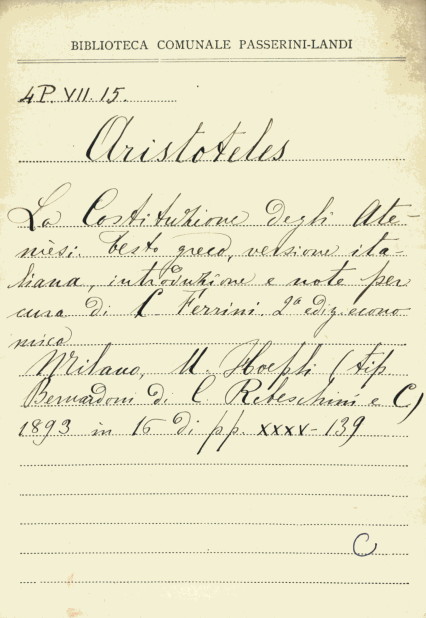 BIBLIOTECA COMUNALE PASSERINI-LANDI
4P. VII. 15.
Aristoteles
La Costituzione degli Ate-
niesi. Testo greco, versione ita-
liana, introduzione e note per
cura di C. Ferrini. 2ª ediz. econo
mica
Milano, U. Hoepli (tip
Bernardoni di C Rebeschini e C)
1893 in 16 di pp. XXXV-139
C